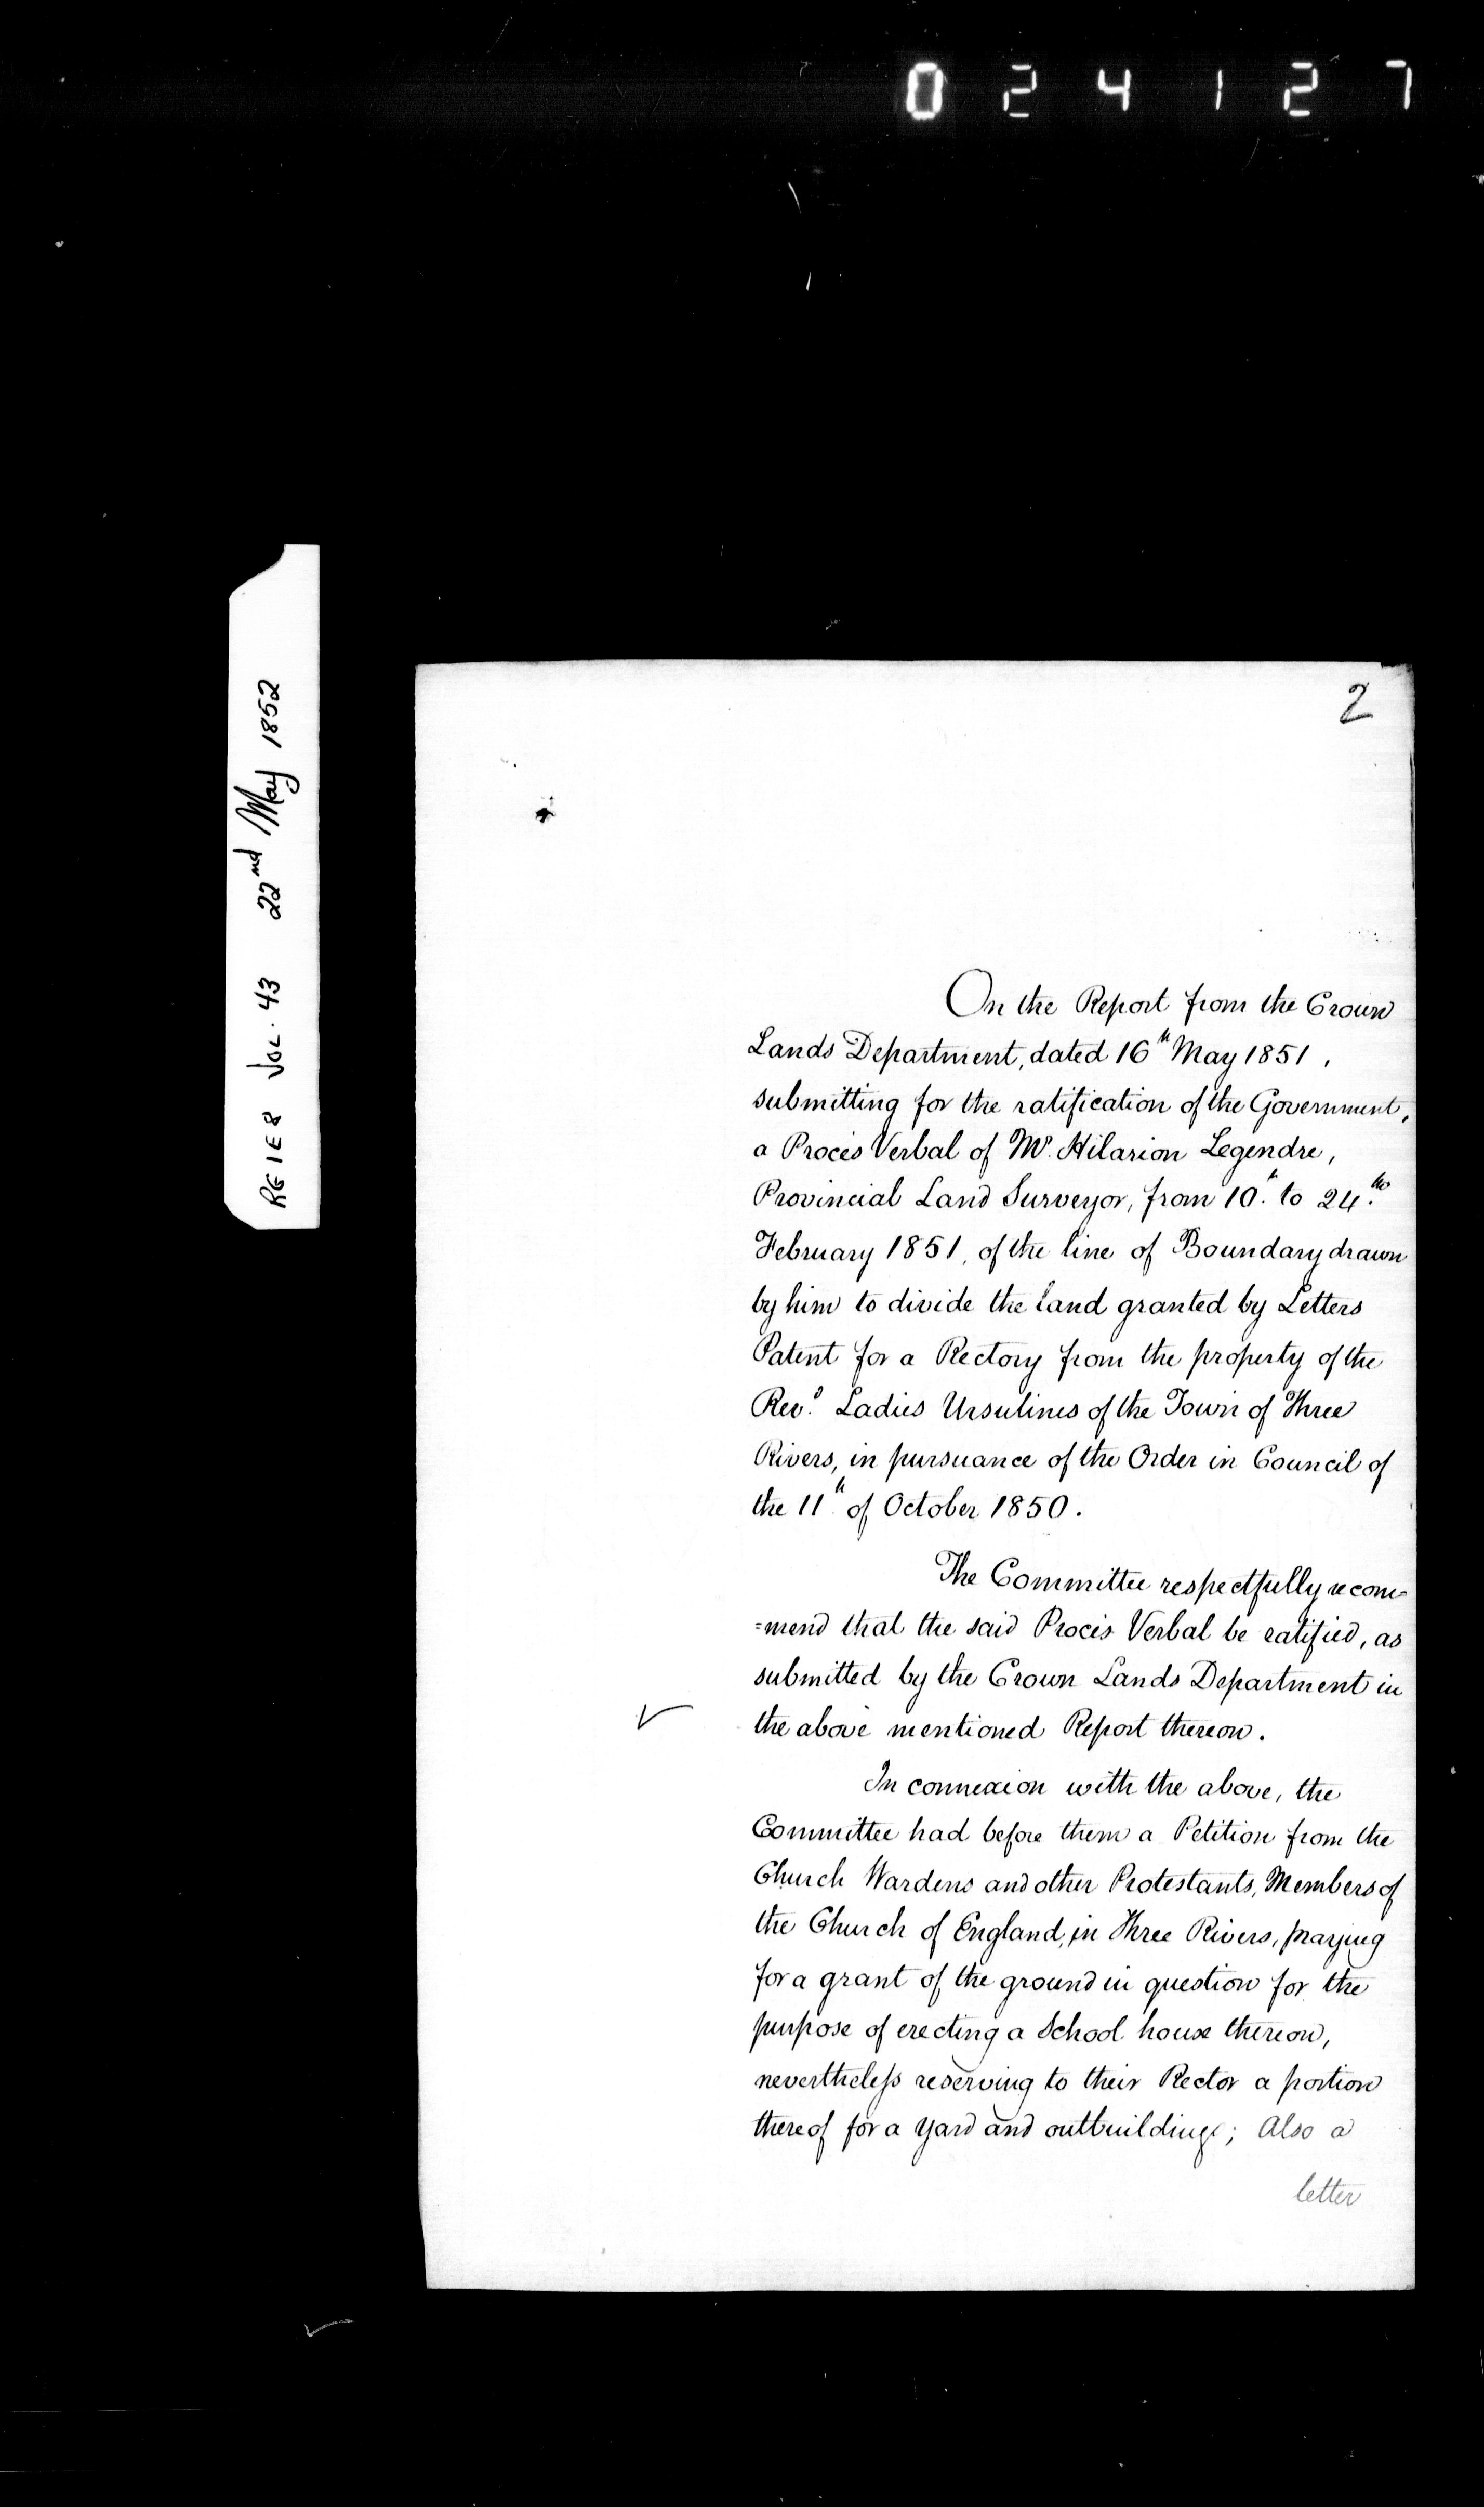 024127
RG 1 E 8 VOL. 43 22nd May 1852
2
On the Report from the Crown
Lands Department, dated 16th May 1851,
submitting for the ratification of the Government,
a Procès Verbal of Mr. Hilarion Legendre,
Provincial Land Surveyor, from 10th. to 24th.
February 1851, of the line of Boundary drawn
by him to divide the land granted by Letters
Patent for a Rectory from the property of the
Revd. Ladies Ursulines of the Town of Three
Rivers, in pursuance of the Order in Council of
the 11th. of October 1850.
The Committee respectfully recom=
=mend that the said Procès Verbal be ratified, as
submitted by the Crown Lands Department in
the above mentioned Report thereon.
In connexion with the above, the
Committee had before them a Petition from the
Church Wardens and other Protestants, Members of
the Church of England, in Three Rivers, praying
for a grant of the ground in question for the
purpose of erecting a School house thereon,
nevertheless reserving to their Rector a portion
thereof for a yard and outbuildings; Also a
letter